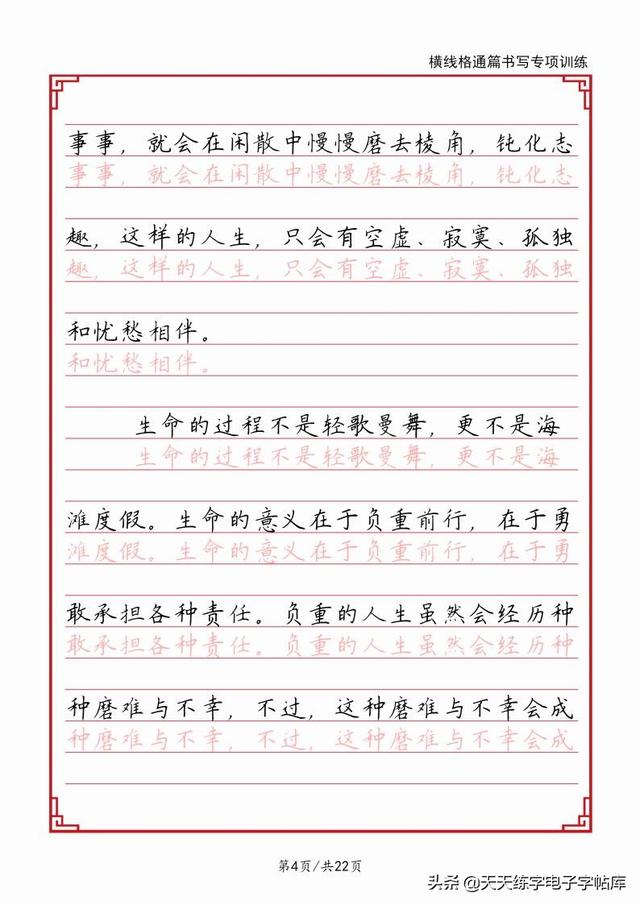 横线格通篇书写专项训练
事事，就会在闲散中慢慢磨去棱角，钝化志
事事，就会在闲散中慢慢磨去棱角，钝化志
趣，这样的人生，只会有空虚、寂寞、孤独
趣，这样的人生，只会有空虚、寂寞、孤独
和忧愁相伴。
和忧愁相伴。
生命的过程不是轻歌曼舞，更不是海
生命的过程不是轻歌曼舞，更不是海
滩度假。生命的意义在于负重前行，在于勇
滩度假。生命的意义在于负重前行，在于勇
敢承担各种责任。负重的人生虽然会经历种
敢承担各种责任。负重的人生虽然会经历种
种磨难与不幸，不过，这种磨难与不幸会成
种磨难与不幸，不过，这种磨难与不幸会成
第4页/共22页
头条 @天天练字电子字帖库